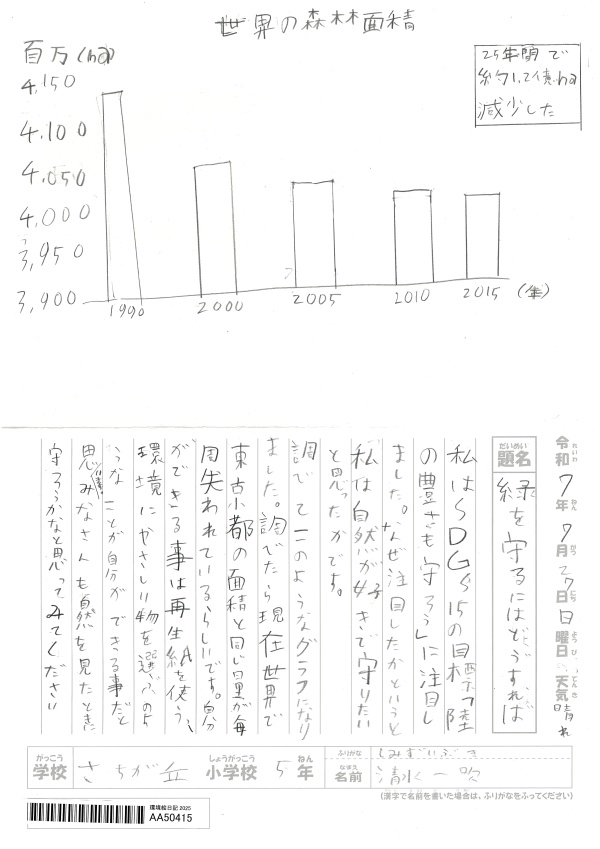 世界の森林面積
百万(ha)
4,150
4,100
4,050
4,000
3,950
3,900
1990
2000
2005
2010
2015
(年)
25年間で
約1.2億ha
減少した
令和7年7月27日日曜日 天気晴れ
れいわ ねん がつ にち ようび てんき
だいめい
題名
緑を守るにはどうすれば
私はSDGs15の目標「陸
の豊さも守ろう」に注目し
ました。なぜ注目したかというと
私は自然が好きで守りたい
と思ったかです。
調べてこのようなグラフになり
ました。調べたら現在世界で
東京都の面積と同じ量が毎
周失われているらしいです。自分
ができる事は再生紙を使う、
環境にやさしい物を選ぶのよ
うなことが自分ができる事だと
思う。みなさんも自然を見たときに
守ろうかなと思ってみてください
がっこう
学校
さちが丘
しょうがっこう
小学校
5
ねん
年
ふりがな
しみずいぶき
なまえ
名前
清水一吹
(漢字で名前を書いた場合は、ふりがなをふってください)
環境絵日記 2025
AA50415